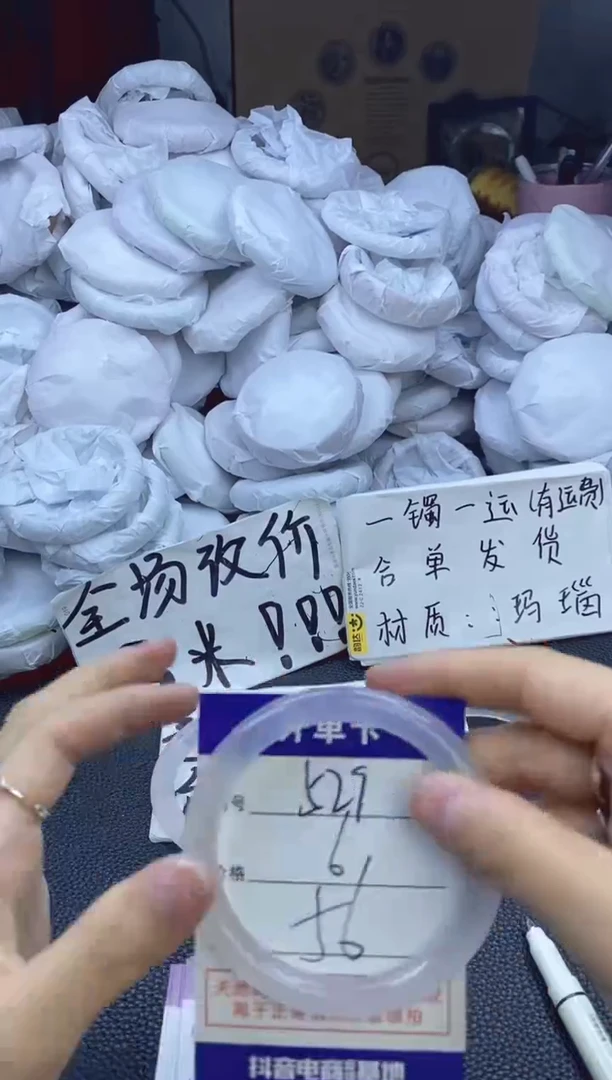 全场改价
米!!!
一镯一运(有运费)
合单发货
材质:玛瑙
单卡
号 529
价格 6/
56
抖音电商 基地